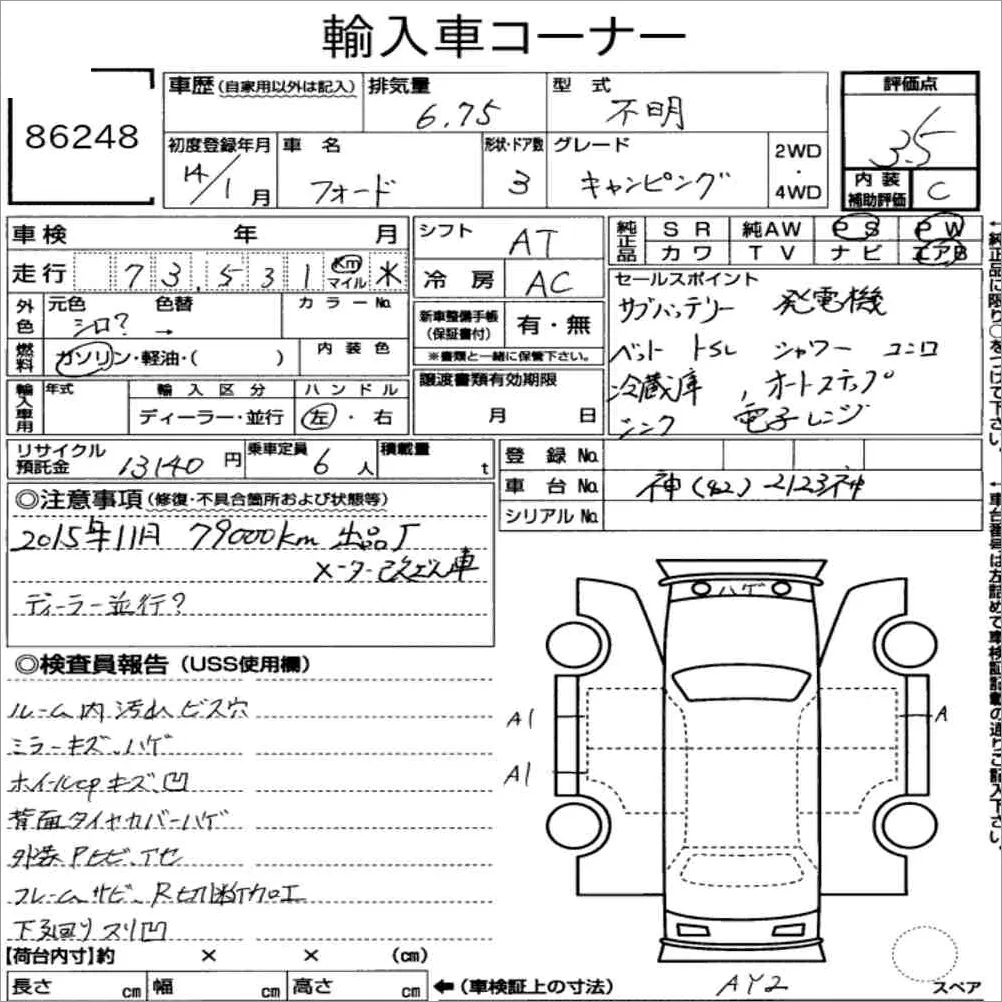 輸入車コーナー
86248
車歴(自家用以外は記入) 排気量 6.75 型式 不明 評価点 3.5
初度登録年月 14/1月 車名 フォード 形状・ドア数 3 グレード キャンピング 2WD・4WD
内装補助評価 C
車検 年 月
走行 73,531 Km マイル 米
外色 元色 シロ? 色替 → カラーNo.
燃料 ガソリン・軽油・( ) 内装色
輸入車用 年式 輸入区分 ディーラー・並行 ハンドル 左・右
シフト AT
冷房 AC
新車整備手帳(保証書付) 有・無
※書類と一緒に保管下さい。
譲渡書類有効期限
月 日
純正品 SR 純AW PS PW
カワ TV ナビ エアB
セールスポイント
サブバッテリー 発電機
ベット トSL シャワー コンロ
冷蔵庫、オートステップ
シンク 電子レンジ
←純正品に限り○をつけて下さい。
リサイクル預託金 13140円 乗車定員 6人 積載量 t
登録No.
車台No. 神(42)2123神
シリアルNo.
←車台番号は左詰めで車検証記載の通りご記入下さい。
◎注意事項(修復・不具合箇所および状態等)
2015年11月 79000km 出品了
メーター改ざん車
ディーラー並行?
◎検査員報告(USS使用欄)
ルーム内 汚れ ビス穴
ミラーキズ、ハゲ
ホイールcpキズ、凹
背面タイヤカバーハゲ
外装Pヒビ、アセ
フレームサビ、R切断加工
下廻りスリ凹
ハゲ
A1
A
A1
AY2
スペア
【荷台内寸】約 × × (cm)
長さ cm 幅 cm 高さ cm ←(車検証上の寸法)